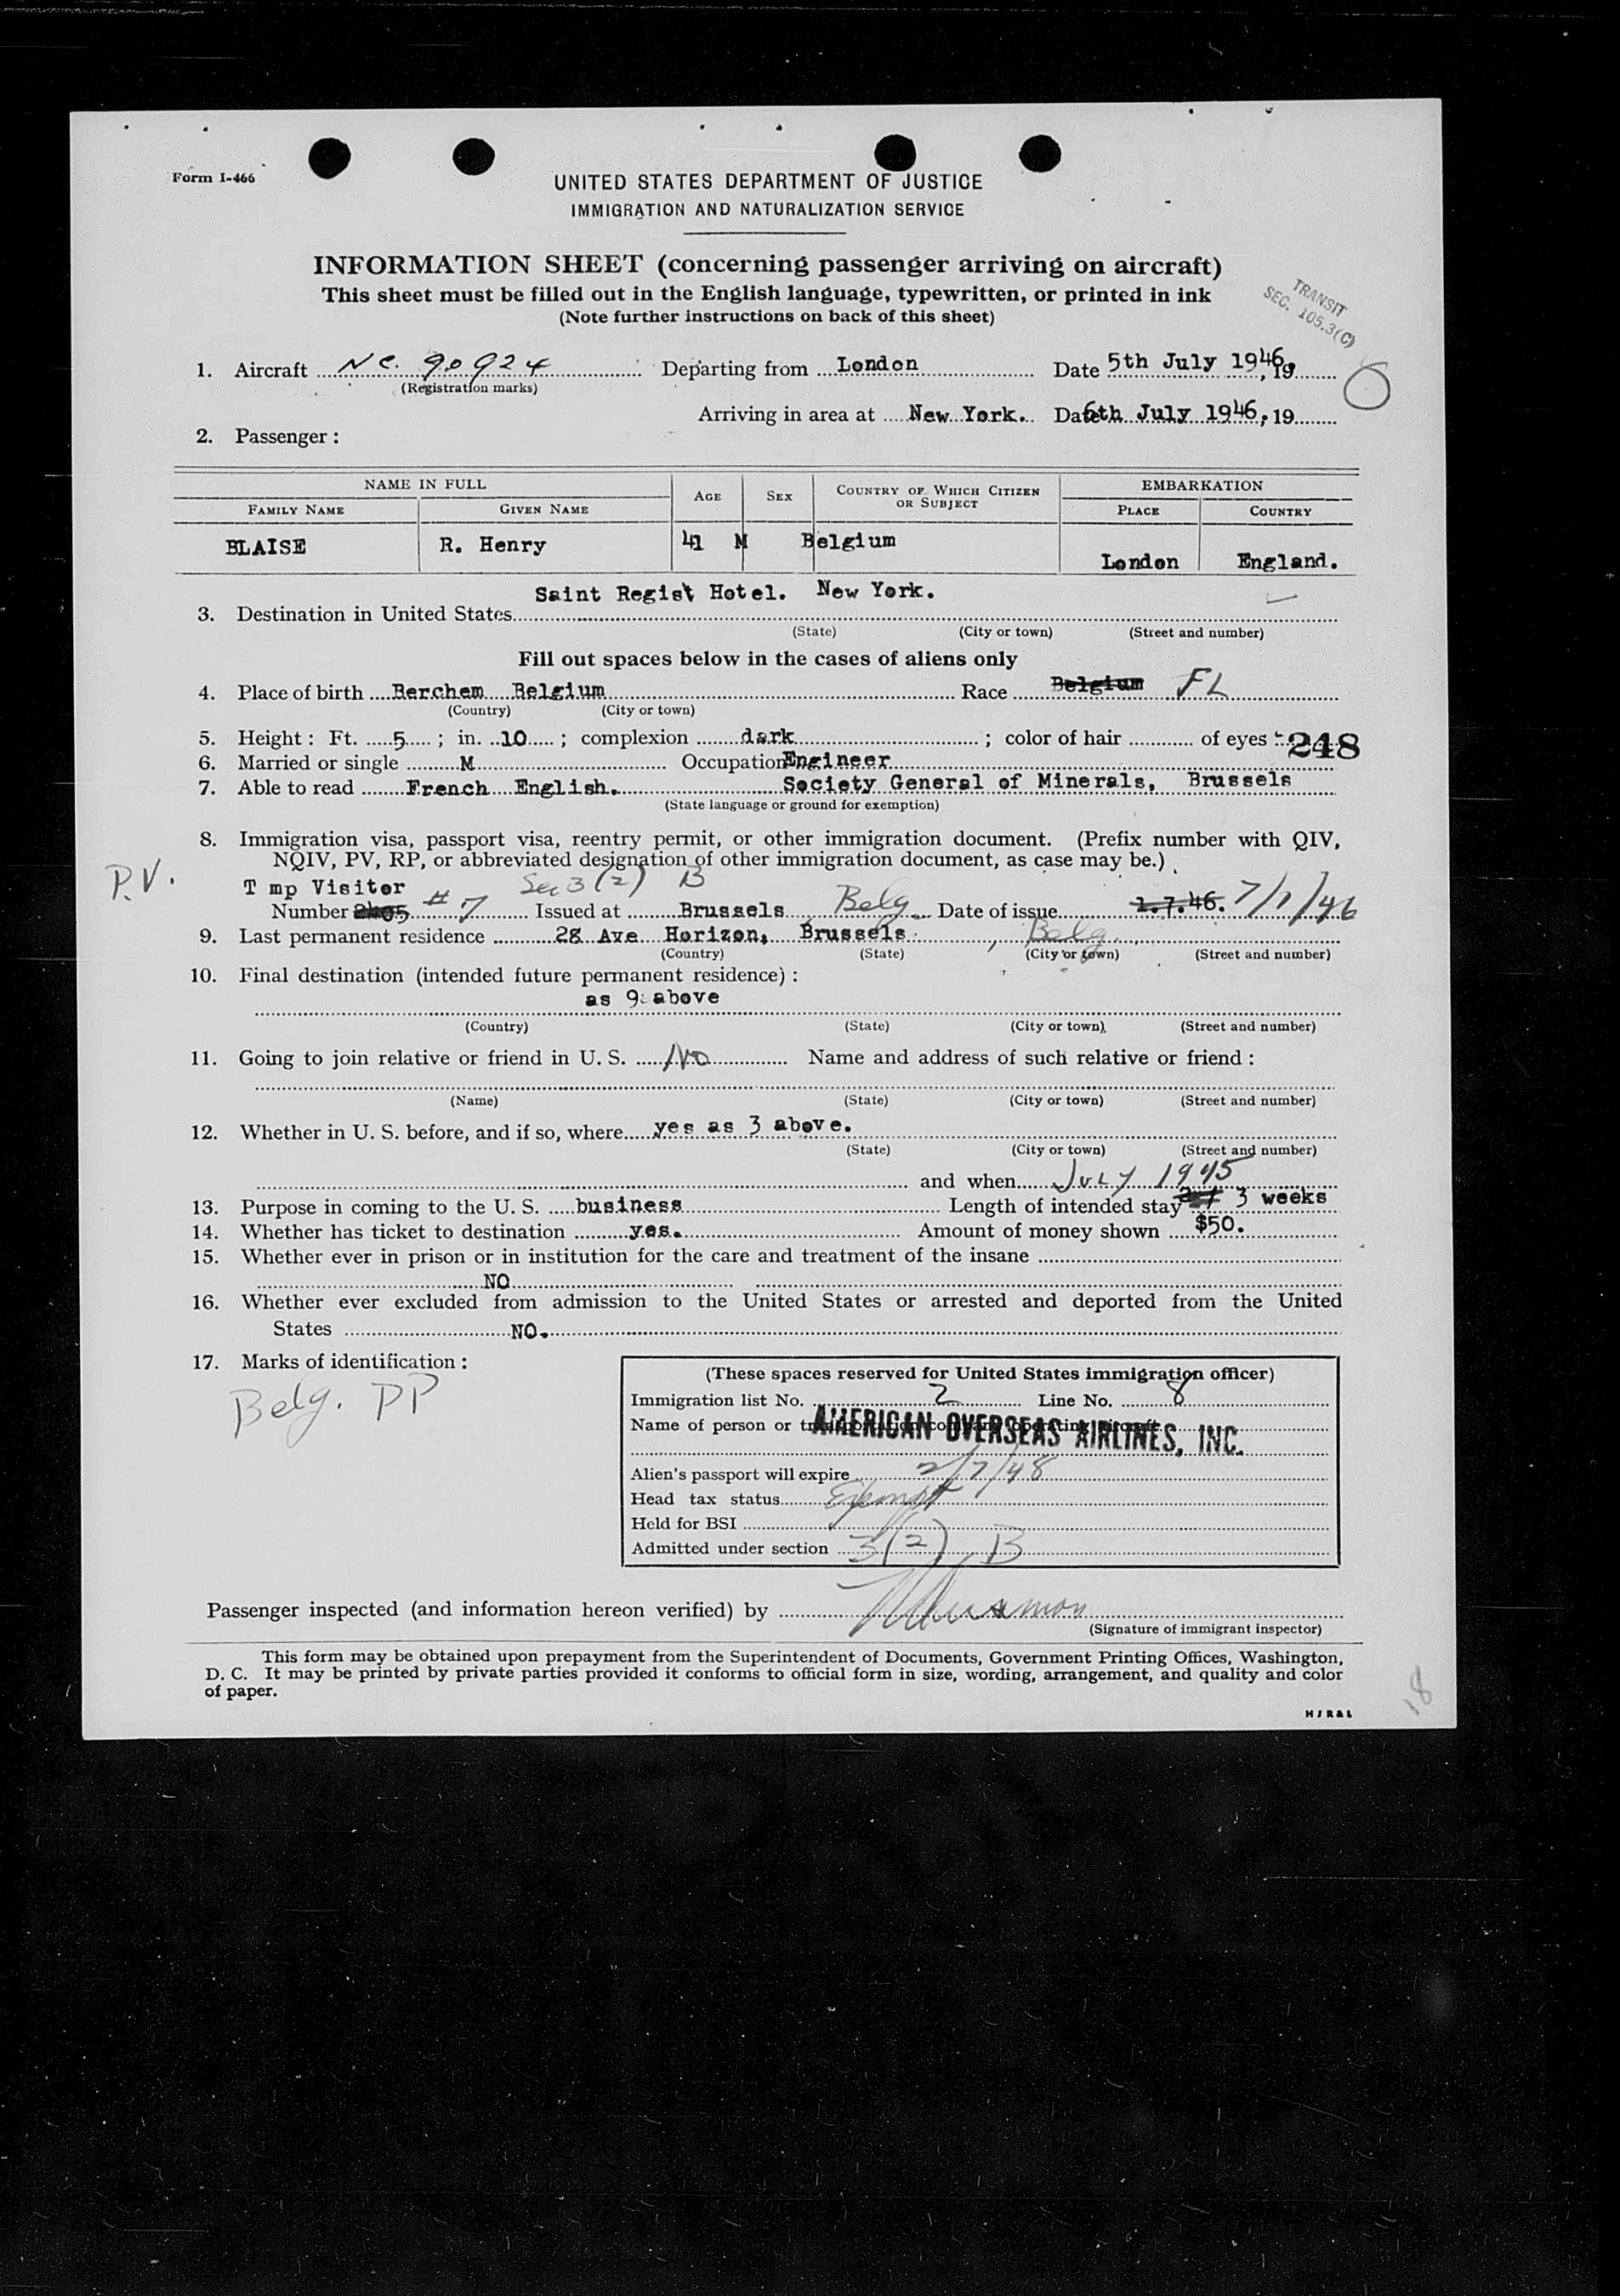 Form I-466
UNITED STATES DEPARTMENT OF JUSTICE
IMMIGRATION AND NATURALIZATION SERVICE
INFORMATION SHEET (concerning passenger arriving on aircraft)
This sheet must be filled out in the English language, typewritten, or printed in ink
(Note further instructions on back of this sheet)
TRANSIT
SEC. 105.3(C)
1. Aircraft NC. 90924 Departing from London Date 5th July 1946, 19
(Registration marks)
Arriving in area at New York. Date 6th July 1946, 19
2. Passenger :
NAME IN FULL AGE SEX COUNTRY OF WHICH CITIZEN OR SUBJECT EMBARKATION
FAMILY NAME GIVEN NAME PLACE COUNTRY
BLAISE R. Henry 41 M Belgium London England.
Saint Regist Hotel. New York.
3. Destination in United States
(State) (City or town) (Street and number)
Fill out spaces below in the cases of aliens only
4. Place of birth Berchem Belgium Race Belgium FL
(Country) (City or town)
5. Height : Ft. 5 ; in. 10 ; complexion dark ; color of hair of eyes 248
6. Married or single M Occupation Engineer
7. Able to read French English. Society General of Minerals, Brussels
(State language or ground for exemption)
8. Immigration visa, passport visa, reentry permit, or other immigration document. (Prefix number with QIV,
NQIV, PV, RP, or abbreviated designation of other immigration document, as case may be.)
P.V.
T mp Visitor Sec 3 (2) B
Number # 7 Issued at Brussels Belg. Date of issue 1.7.46. 7/1/46
9. Last permanent residence 28 Ave Horizon, Brussels , Belg.
(Country) (State) (City or town) (Street and number)
10. Final destination (intended future permanent residence) :
as 9: above
(Country) (State) (City or town) (Street and number)
11. Going to join relative or friend in U. S. No Name and address of such relative or friend :
(Name) (State) (City or town) (Street and number)
12. Whether in U. S. before, and if so, where yes as 3 above.
(State) (City or town) (Street and number)
and when July 1945
13. Purpose in coming to the U. S. business Length of intended stay 3 weeks
14. Whether has ticket to destination yes. Amount of money shown $50.
15. Whether ever in prison or in institution for the care and treatment of the insane
NO
16. Whether ever excluded from admission to the United States or arrested and deported from the United
States NO.
17. Marks of identification :
Belg. PP
(These spaces reserved for United States immigration officer)
Immigration list No. 2 Line No. 8
Name of person or transportation company operating aircraft
AMERICAN OVERSEAS AIRLINES, INC.
Alien's passport will expire 2/7/48
Head tax status Exempt
Held for BSI
Admitted under section 3(2), B
Passenger inspected (and information hereon verified) by
(Signature of immigrant inspector)
This form may be obtained upon prepayment from the Superintendent of Documents, Government Printing Offices, Washington,
D. C. It may be printed by private parties provided it conforms to official form in size, wording, arrangement, and quality and color
of paper.
H J R & L
18